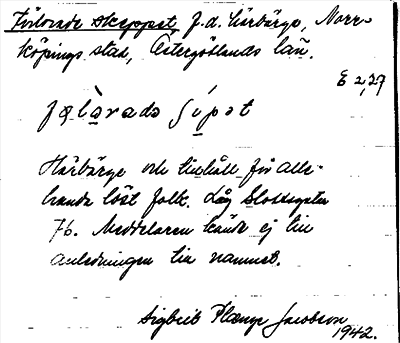 Förlorade skeppet, f.d. härbärge, Norr-
köpings stad, Östergötlands län.
E 2,27
fœlὰrado ʃípət
Härbärge och tillhåll för alle-
handa löst folk. Låg Slottsgatan
76. Meddelaren kände ej till
anledningen till namnet.
Sigbrit Plænge Jacobson
1942.